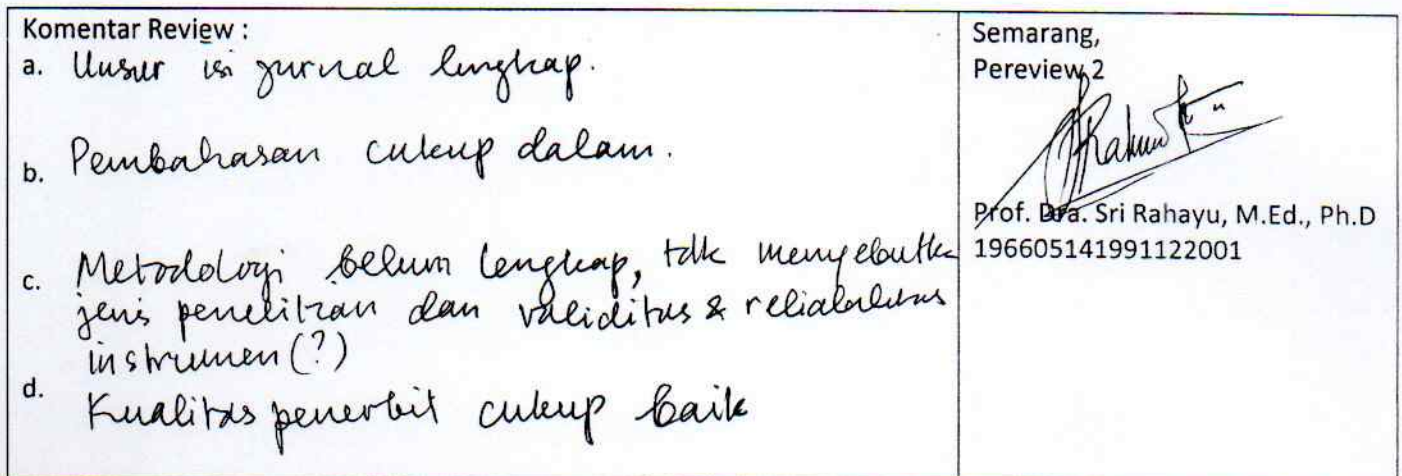 Komentar Review :
a. Unsur isi jurnal lengkap.
b. Pembahasan cukup dalam.
c. Metodologi belum lengkap, tdk menyebutkan
jenis penelitian dan validitas & reliabilitas
instrumen (?)
d. Kualitas penerbit cukup baik
Semarang,
Pereview 2
Prof. Dra. Sri Rahayu, M.Ed., Ph.D
196605141991122001